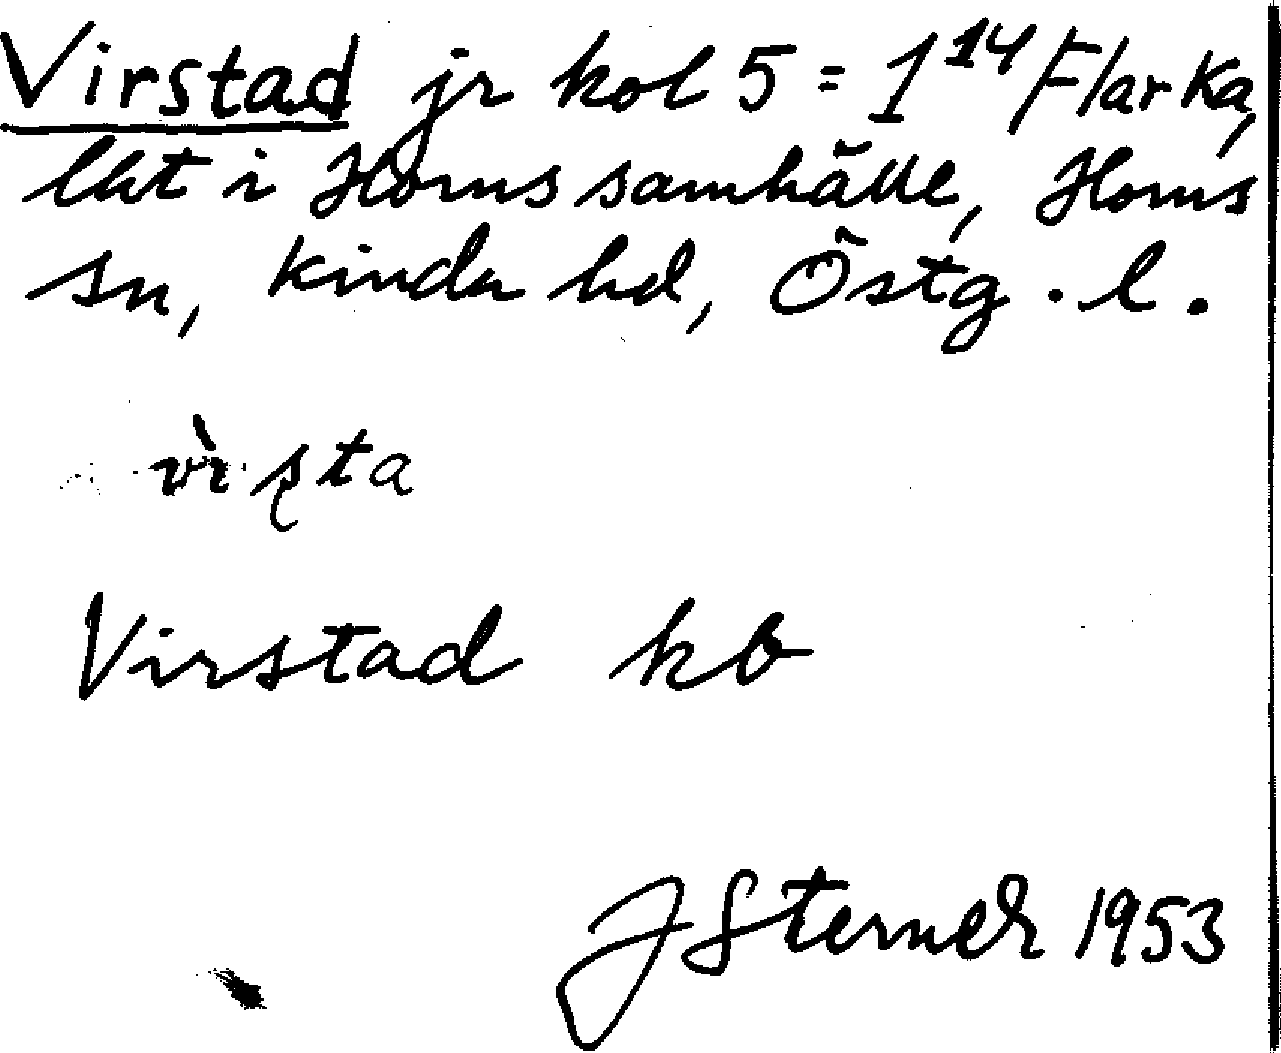 Virstad jr kol 5 = 1¹⁴ Flarka,
lht i Horns samhälle, Horns
sn, Kinda hd, Östg. l.
vìşta
Virstad kb
J Sterner 1953